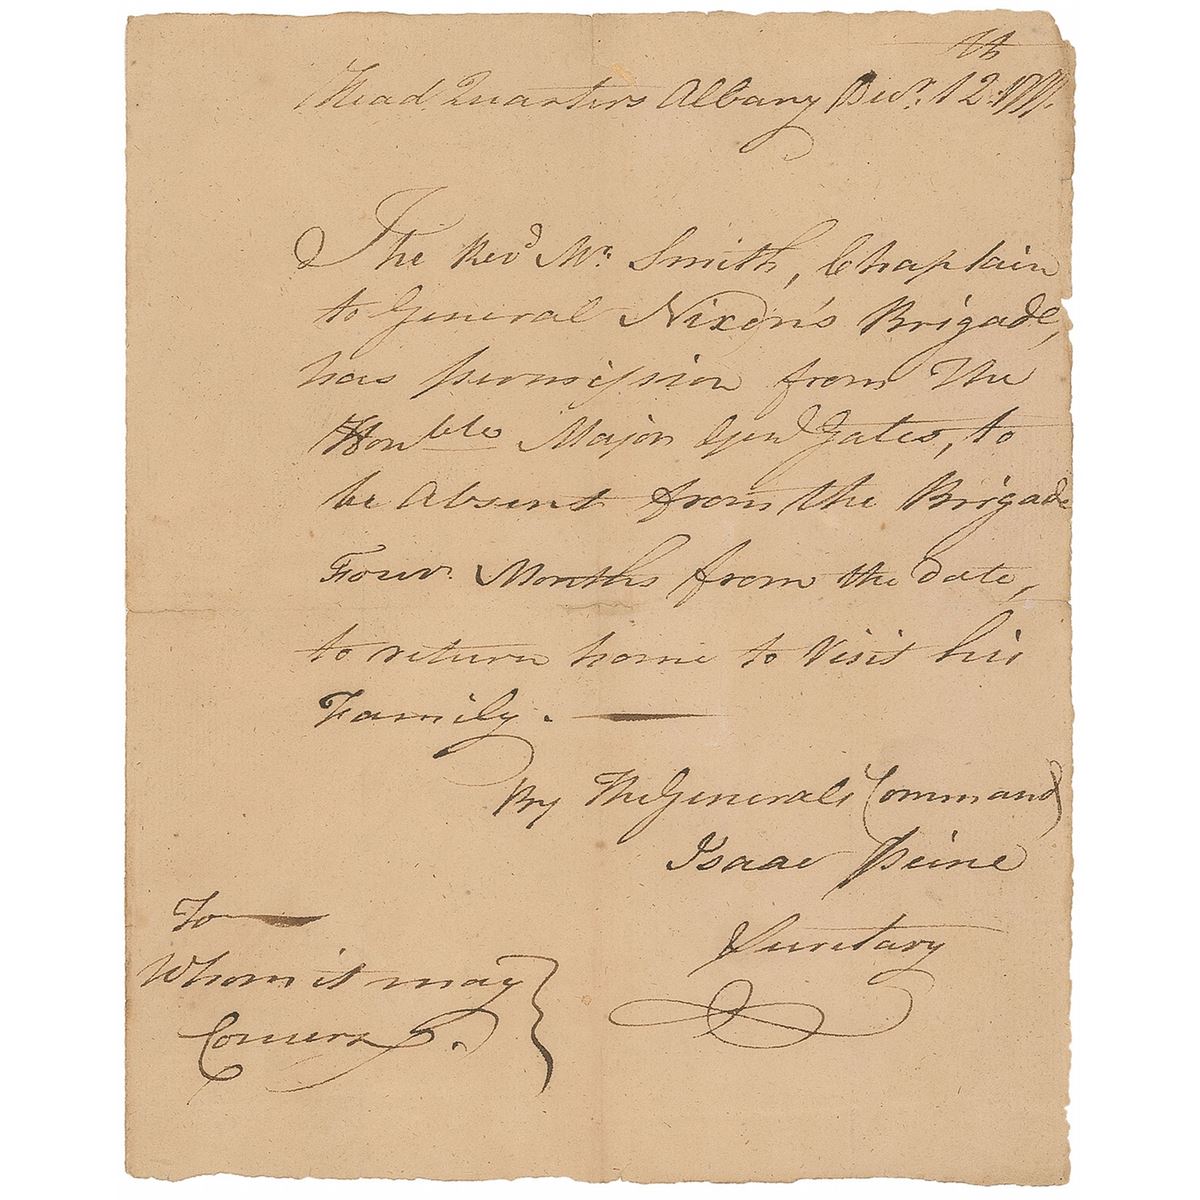 Head Quarters Albany Decr. 12th 1777.
The Revd Mr. Smith, Chaplain
to General Nixon's Brigade,
has permission from The
Honble Major Genl Gates, to
be Absent from the Brigade
Four Months from the date,
to return home to Visit his
Family.
By The Generals Command
Isaac Peirce
Secretary
To
Whom it may
Concern.